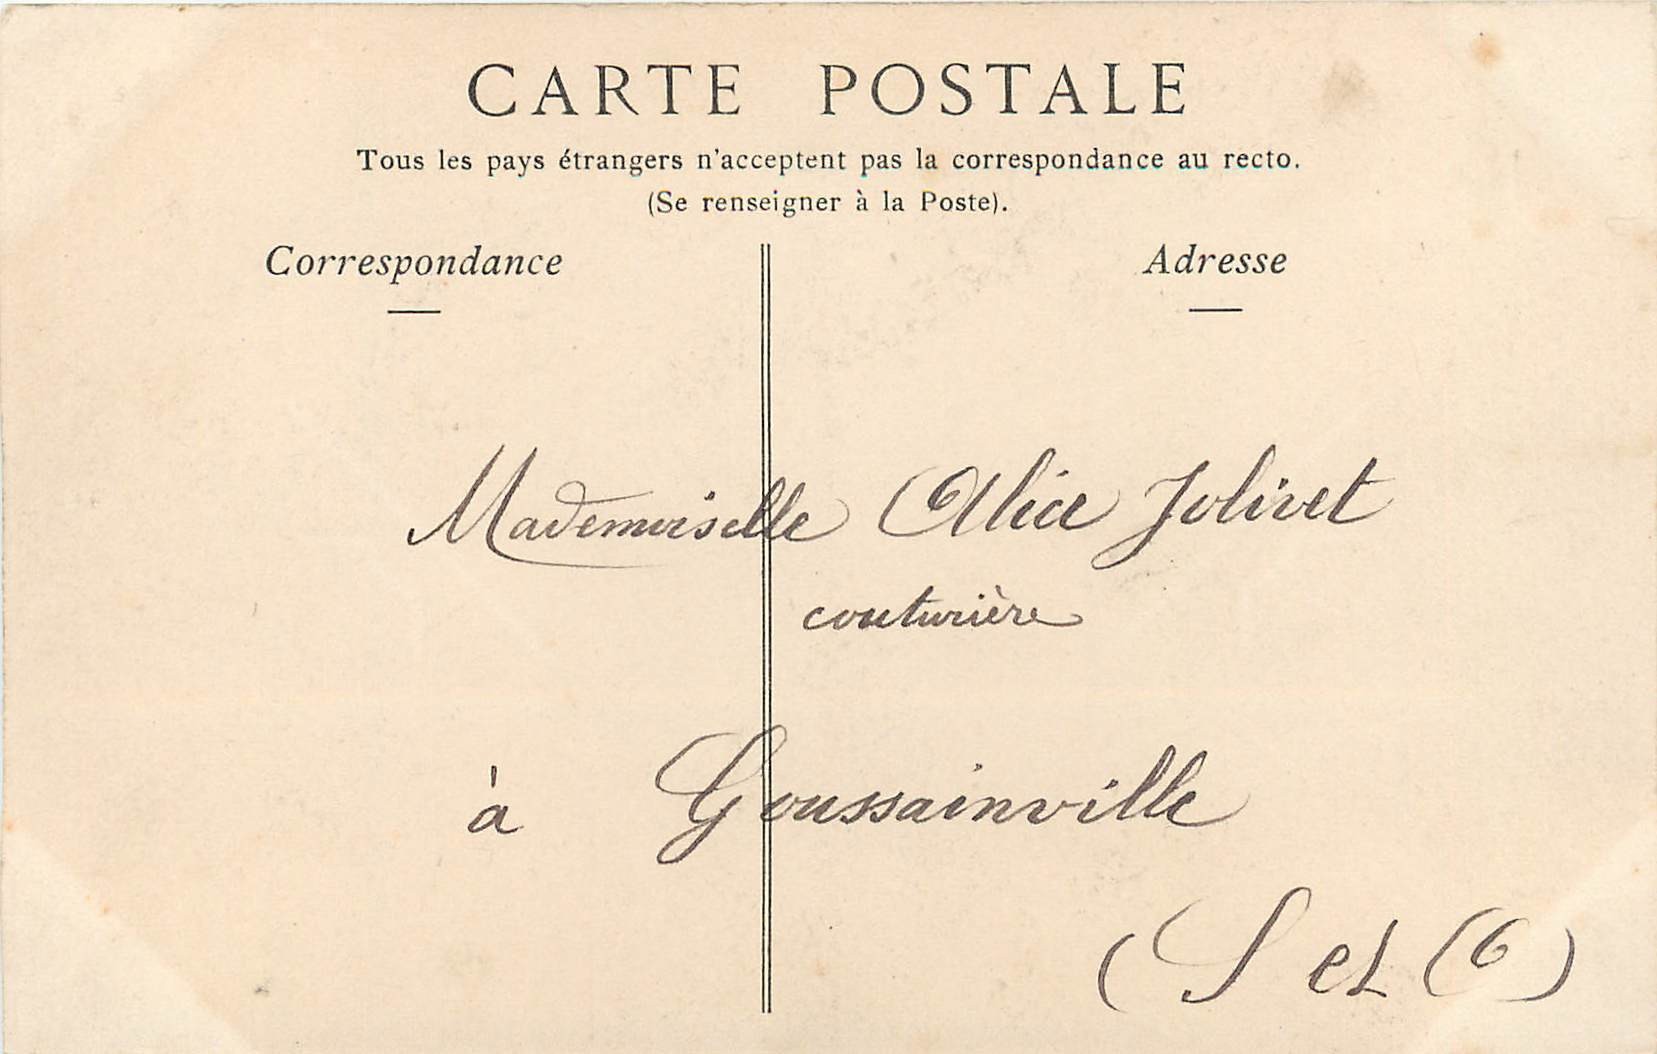 CARTE POSTALE
Tous les pays étrangers n'acceptent pas la correspondance au recto.
(Se renseigner à la Poste).
Correspondance
Adresse
Mademoiselle Alice Jolivet
couturière
à Goussainville
(S et O)